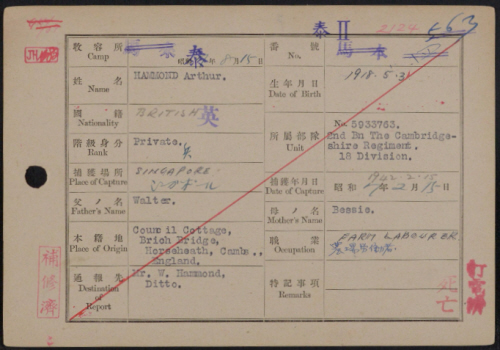 泰 II 2124 563
収容所 Camp 泰 昭和 年 8月15日
番號 No.
姓名 Name HAMMOND Arthur.
生年月日 Date of Birth 1918.5.31
國籍 Nationality BRITISH 英
所屬部隊 Unit No. 5933763.
2nd Bn The Cambridge-
shire Regiment.
18 Division.
階級身分 Rank Private. 兵
捕獲場所 Place of Capture SINGAPORE
捕獲年月日 Date of Capture 1942-2-15
昭和 17年2月15日
父ノ名 Father's Name Walter.
母ノ名 Mother's Name Bessie.
本籍地 Place of Origin Council Cottage,
Brich Bridge,
Horseheath, Cambs.,
England.
職業 Occupation FARM LABOURER
通報先 Destination of Report Mr. W. Hammond,
Ditto.
特記事項 Remarks
死亡
補修濟